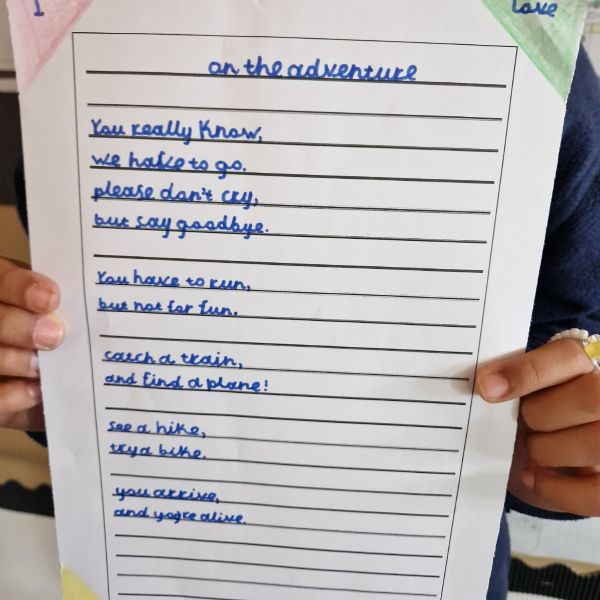 I
love
on the adventure
You really know,
we have to go.
please don't cry,
but say goodbye.
You have to run,
but not for fun.
catch a train,
and find a plane!
see a hike,
try a bike.
you arrive,
and you're alive.